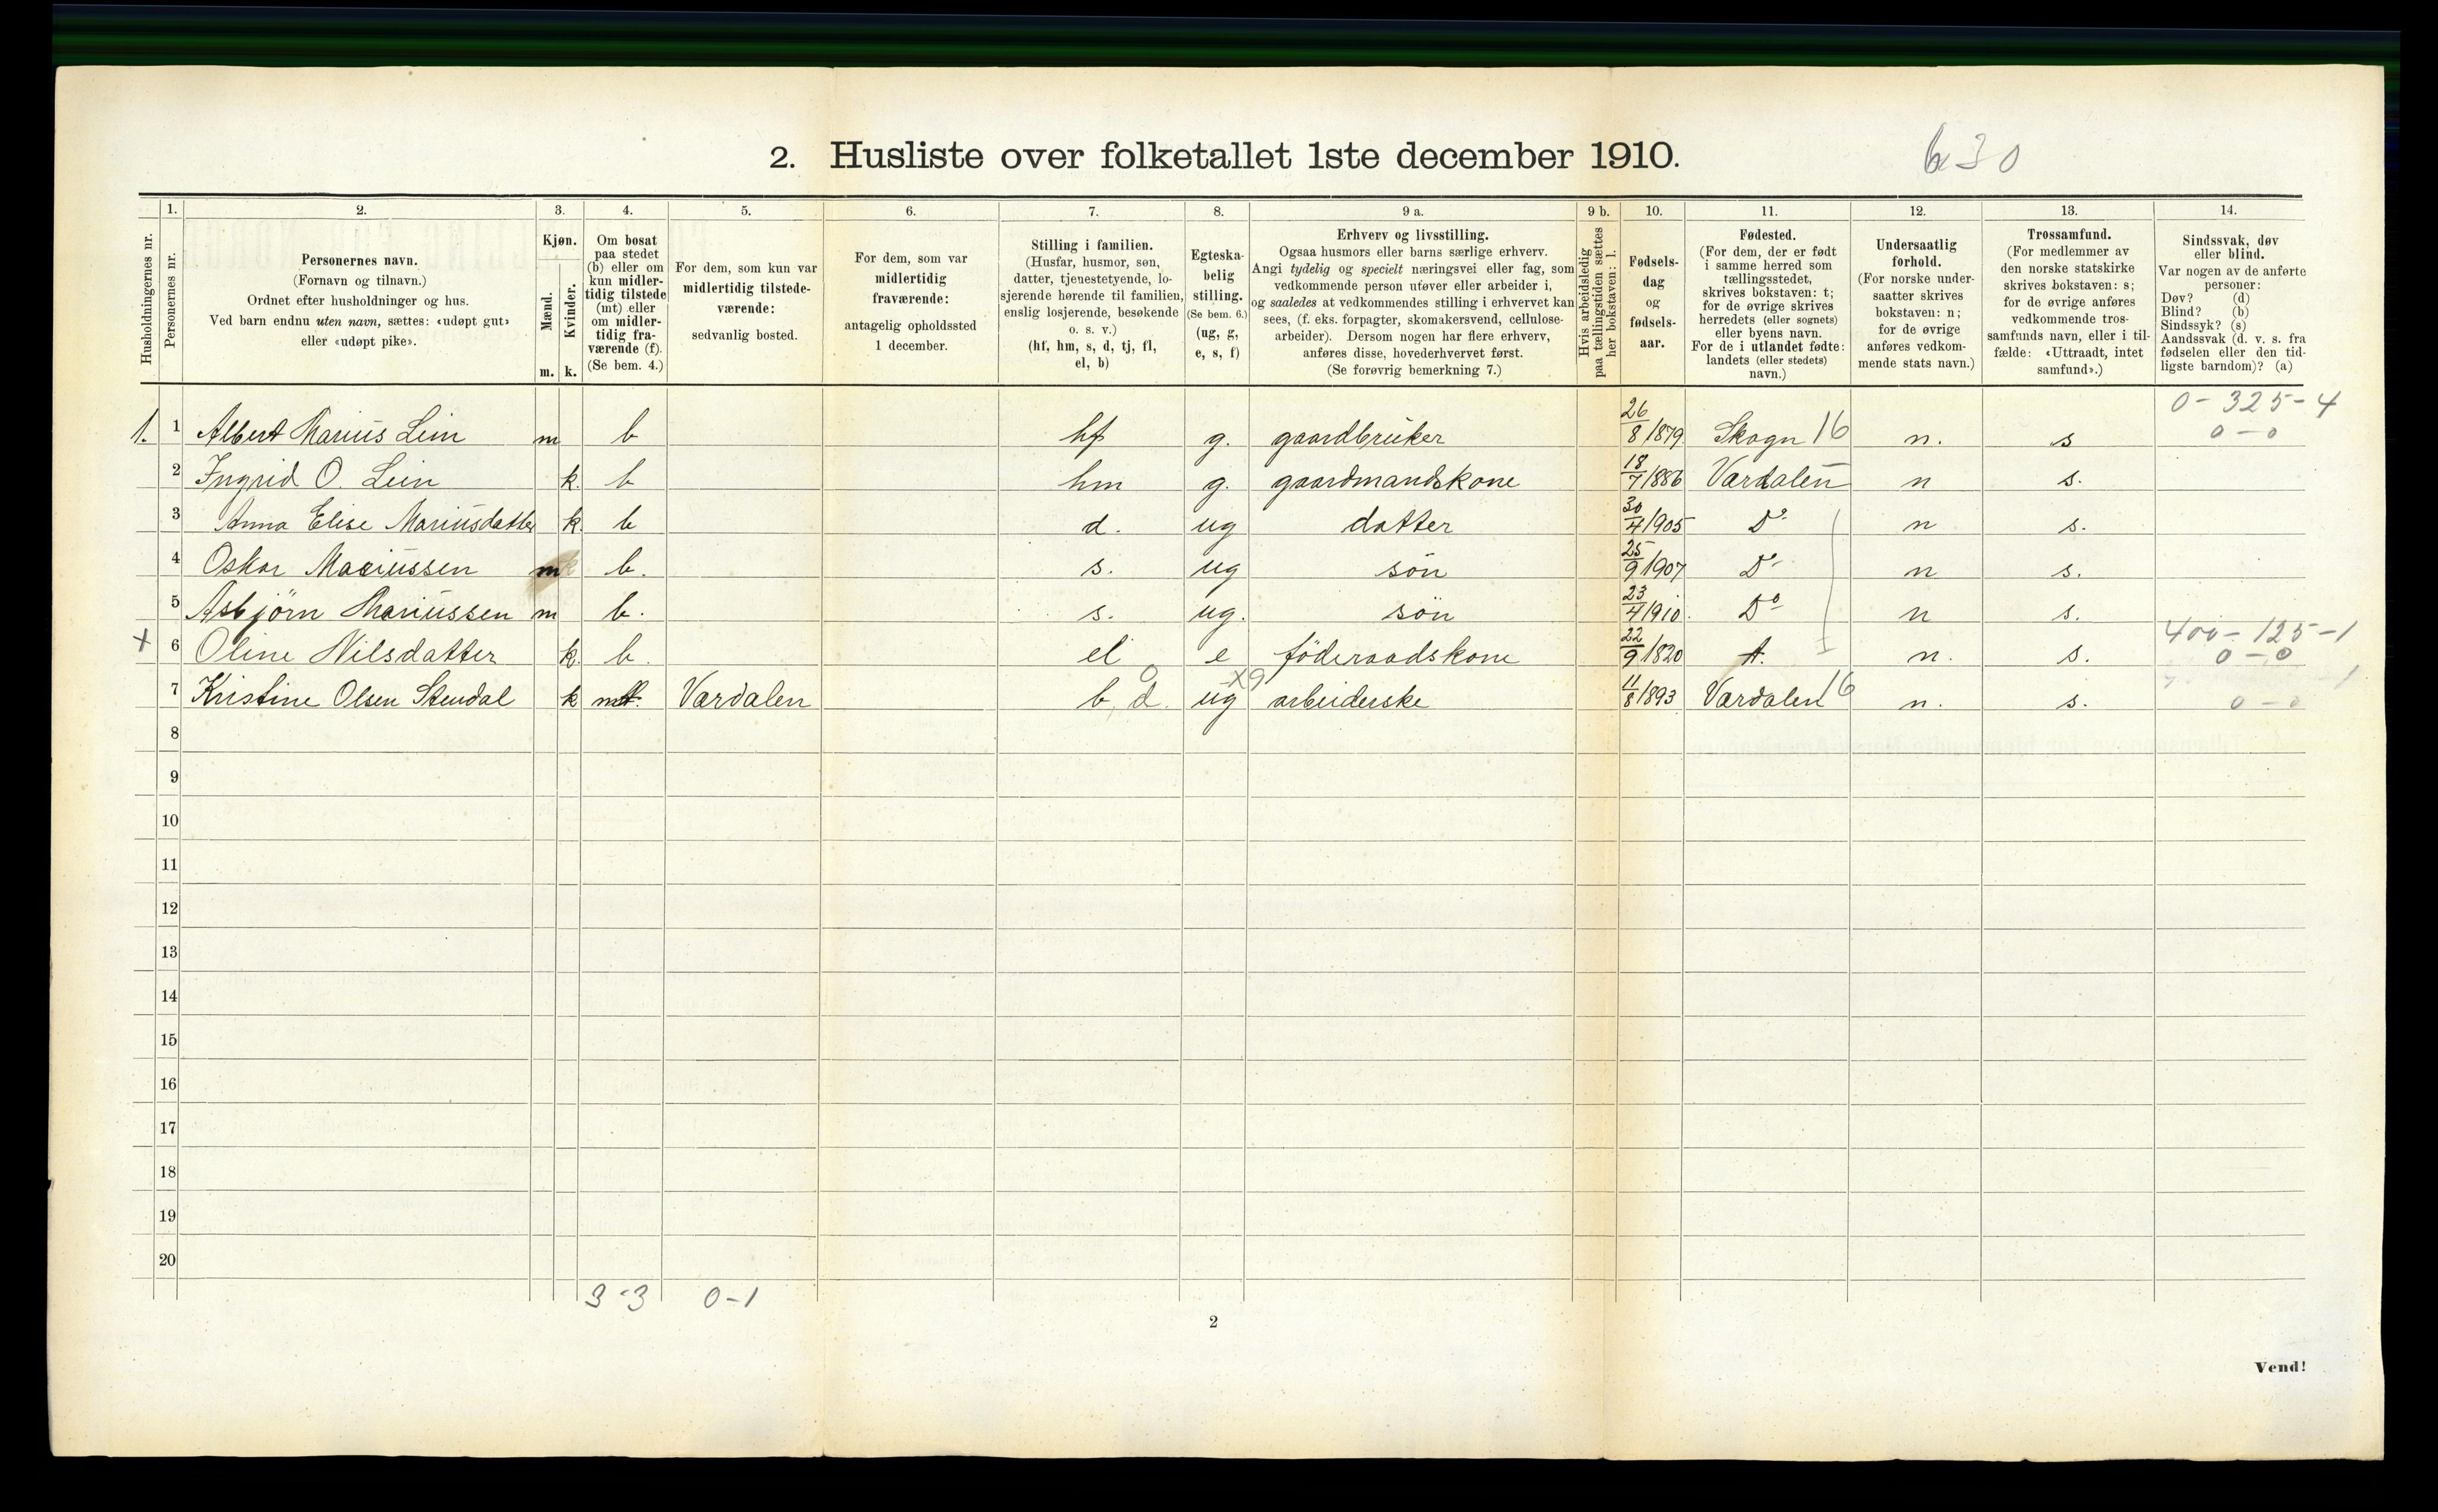 2. Husliste over folketallet 1ste december 1910.
630
1. 2. 3. 4. 5. 6. 7. 8. 9 a. 9 b. 10. 11. 12. 13. 14.
Husholdningernes nr.
Personernes nr.
Personernes navn.
(Fornavn og tilnavn.)
Ordnet efter husholdninger og hus.
Ved barn endnu uten navn, sættes: «udøpt gut»
eller «udøpt pike».
Kjøn.
Mænd.
Kvinder.
m. k.
Om bosat
paa stedet
(b) eller om
kun midler-
tidig tilstede
(mt) eller
om midler-
tidig fra-
værende (f).
(Se bem. 4.)
For dem, som kun var
midlertidig tilstede-
værende:
sedvanlig bosted.
For dem, som var
midlertidig
fraværende:
antagelig opholdssted
1 december.
Stilling i familien.
(Husfar, husmor, søn,
datter, tjenestetyende, lo-
sjerende hørende til familien,
enslig losjerende, besøkende
o. s. v.)
(hf, hm, s, d, tj, fl,
el, b)
Egteska-
belig
stilling.
(Se bem. 6.)
(ug, g,
e, s, f)
Erhverv og livsstilling.
Ogsaa husmors eller barns særlige erhverv.
Angi tydelig og specielt næringsvei eller fag, som
vedkommende person utøver eller arbeider i,
og saaledes at vedkommendes stilling i erhvervet kan
sees, (f. eks. forpagter, skomakersvend, cellulose-
arbeider). Dersom nogen har flere erhverv,
anføres disse, hovederhvervet først.
(Se forøvrig bemerkning 7.)
Hvis arbeidsledig
paa tællingstiden sættes
her bokstaven: l.
Fødsels-
dag
og
fødsels-
aar.
Fødested.
(For dem, der er født
i samme herred som
tællingsstedet,
skrives bokstaven: t;
for de øvrige skrives
herredets (eller sognets)
eller byens navn.
For de i utlandet fødte:
landets (eller stedets)
navn.)
Undersaatlig
forhold.
(For norske under-
saatter skrives
bokstaven: n;
for de øvrige
anføres vedkom-
mende stats navn.)
Trossamfund.
(For medlemmer av
den norske statskirke
skrives bokstaven: s;
for de øvrige anføres
vedkommende tros-
samfunds navn, eller i til-
fælde: «Uttraadt, intet
samfund».)
Sindssvak, døv
eller blind.
Var nogen av de anførte
personer:
Døv? (d)
Blind? (b)
Sindssyk? (s)
Aandssvak (d. v. s. fra
fødselen eller den tid-
ligste barndom)? (a)
0-325-4
1. 1 Albert Marius Lein m b hf g. gaardbruker 26/8 1879 Skogn 16 n. s 0-0
2 Ingrid O. Lein k. b hm g. gaardmandskone 18/7 1886 Værdalen n s.
3 Anna Elise Mariusdatter k. b d. ug datter 30/4 1905 Do n s.
4 Oskar Mariussen m b. s. ug søn 25/9 1907 Do n s.
5 Asbjörn Mariussen m b. s. ug. søn 23/4 1910. Do n s.
400-125-1
x 6 Oline Nilsdatter k. b. el e föderaadskone 22/9 1820 t. n. s. 0-0
7 Kristine Olsen Stendal k mt. Værdalen b, d. ug x9 arbeiderske 11/8 1893 Værdalen 16 n. s. 0-0
8
9
10
11
12
13
14
15
16
17
18
19
20
3-3 0-1
2
Vend!